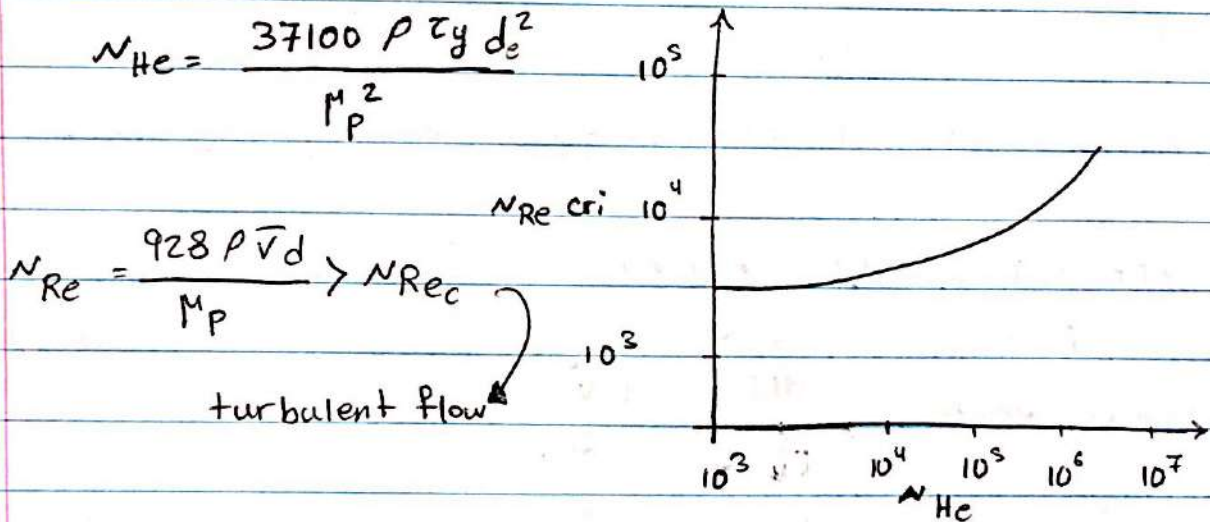 N_He = 37100 ρ τy d_e² / μ_p²
N_Re = 928 ρ V̄ d / μ_p > N_Rec
turbulent flow
10⁵
N_Re cri 10⁴
10³
10³ 10⁴ 10⁵ 10⁶ 10⁷
N_He